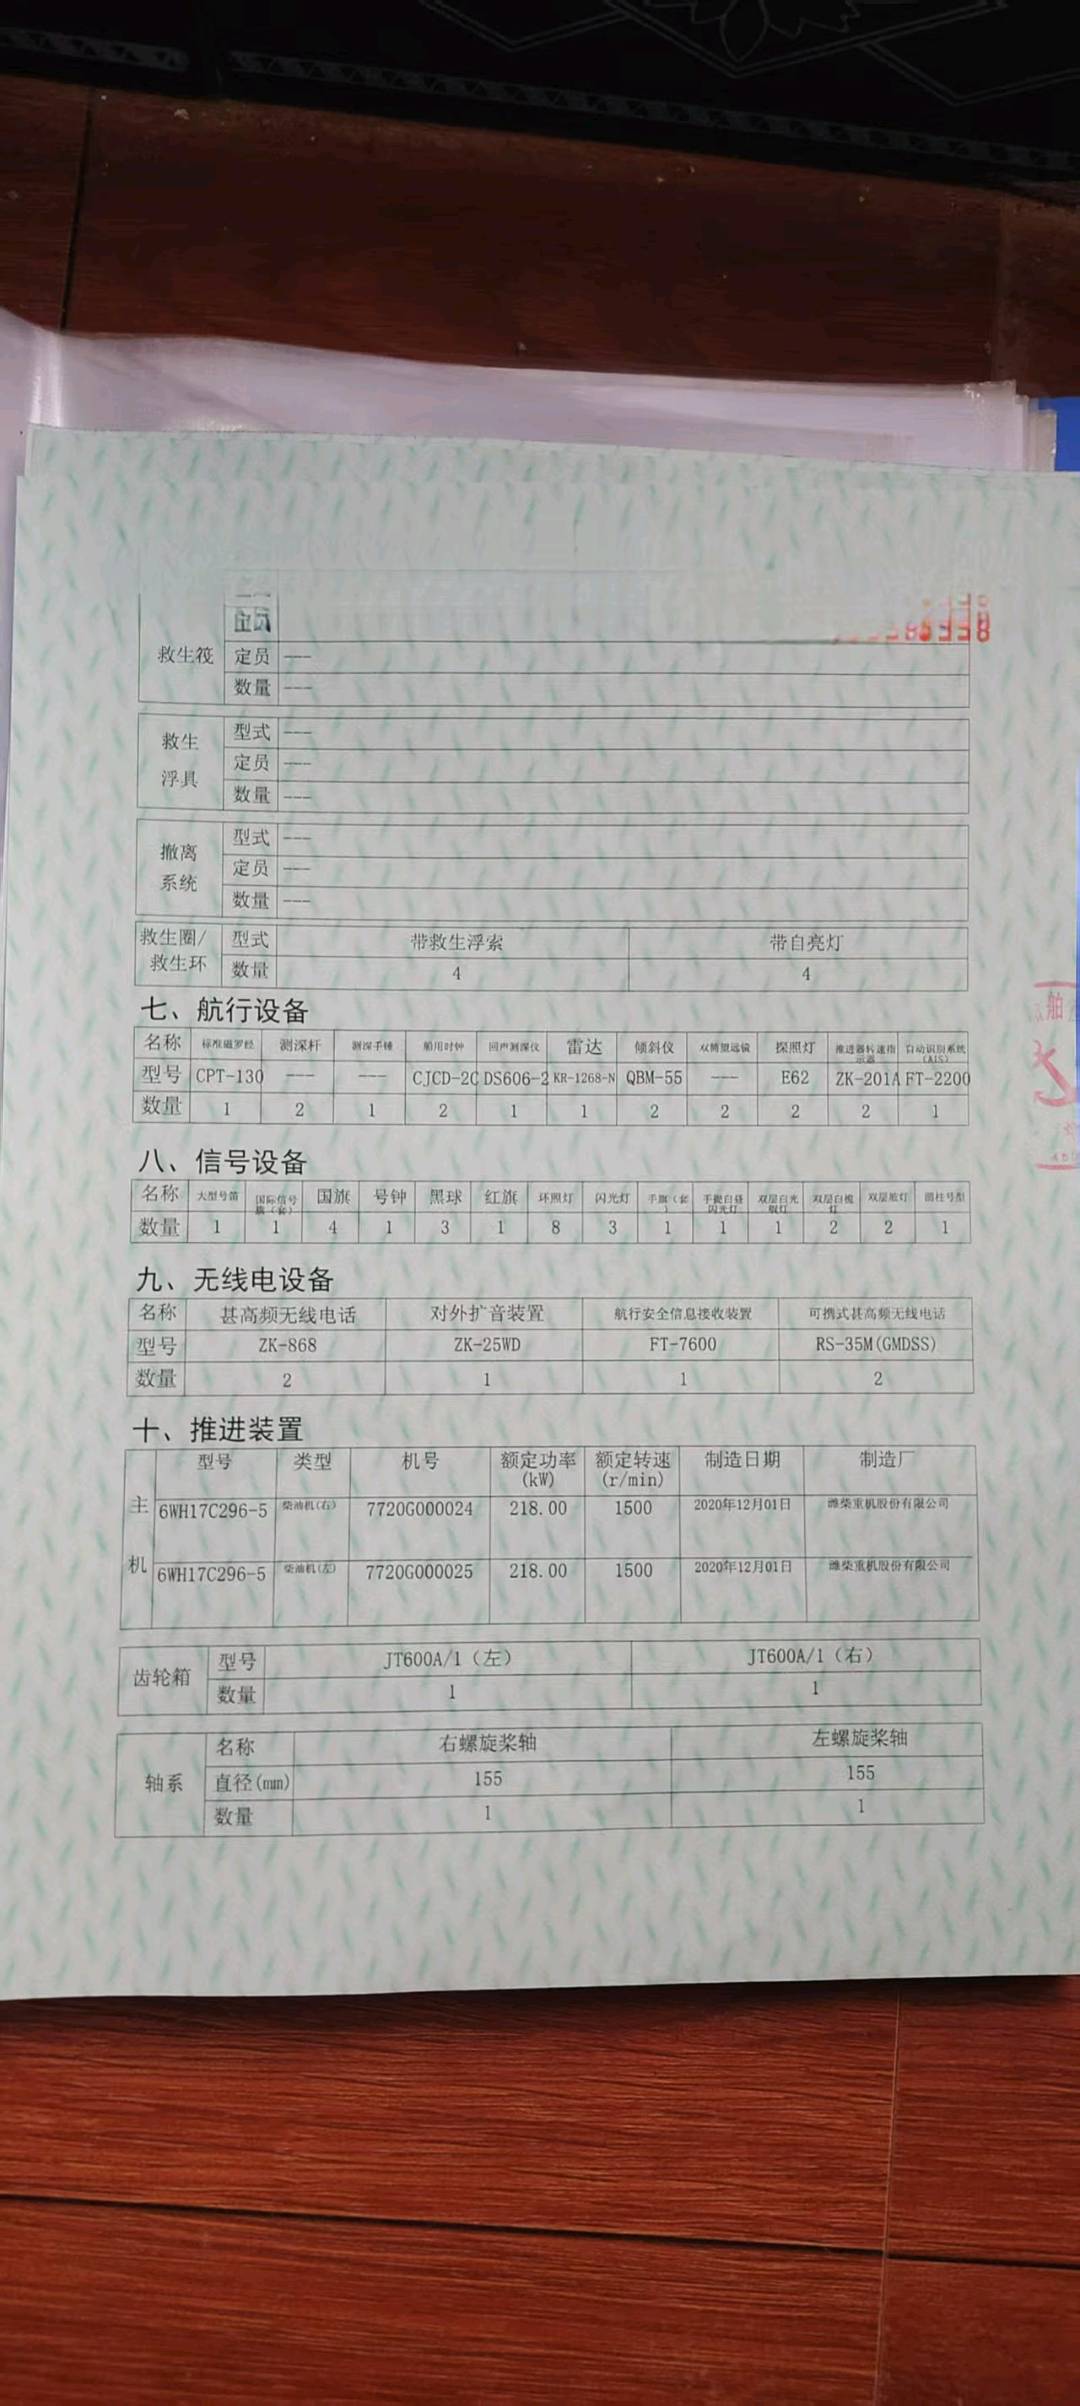 救生筏
定员 ---
数量 ---
救生浮具
型式 ---
定员 ---
数量 ---
撤离系统
型式 ---
定员 ---
数量 ---
救生圈/救生环
型式 带救生浮索 带自亮灯
数量 4 4
七、航行设备
名称 标准磁罗经 测深杆 测深手锤 船用时钟 回声测深仪 雷达 倾斜仪 双筒望远镜 探照灯 推进器转速指示器 自动识别系统(AIS)
型号 CPT-130 --- --- CJCD-2C DS606-2 KR-1268-N QBM-55 --- E62 ZK-201A FT-2200
数量 1 2 1 2 1 1 2 2 2 2 1
八、信号设备
名称 大型号笛 国际信号旗(套) 国旗 号钟 黑球 红旗 环照灯 闪光灯 手旗(套) 手提白昼闪光灯 双层白光 双层白桅灯 双层舷灯 圆柱号型
数量 1 1 4 1 3 1 8 3 1 1 1 2 2 1
九、无线电设备
名称 甚高频无线电话 对外扩音装置 航行安全信息接收装置 可携式甚高频无线电话
型号 ZK-868 ZK-25WD FT-7600 RS-35M(GMDSS)
数量 2 1 1 2
十、推进装置
主机
型号 类型 机号 额定功率(kW) 额定转速(r/min) 制造日期 制造厂
6WH17C296-5 柴油机(右) 7720G000024 218.00 1500 2020年12月01日 潍柴重机股份有限公司
6WH17C296-5 柴油机(左) 7720G000025 218.00 1500 2020年12月01日 潍柴重机股份有限公司
齿轮箱
型号 JT600A/1（左） JT600A/1（右）
数量 1 1
轴系
名称 右螺旋桨轴 左螺旋桨轴
直径(mm) 155 155
数量 1 1
舶